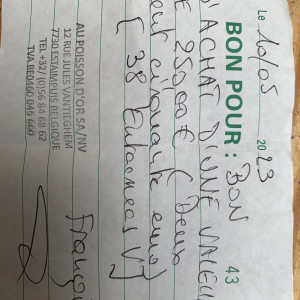 Le 10/05 2023
BON POUR : BON 43
D'ACHAT D'UNE VALEU
250,00 € (Deux
cent cinquante euro)
[ 38
AU POISSON D'OR SA/NV
12 RUE JULES VANTIEGHEM
7730 ESTAIMPUIS BELGIQUE
TEL +32/ (0)56 84 68 62
TVA BE0460 045 660